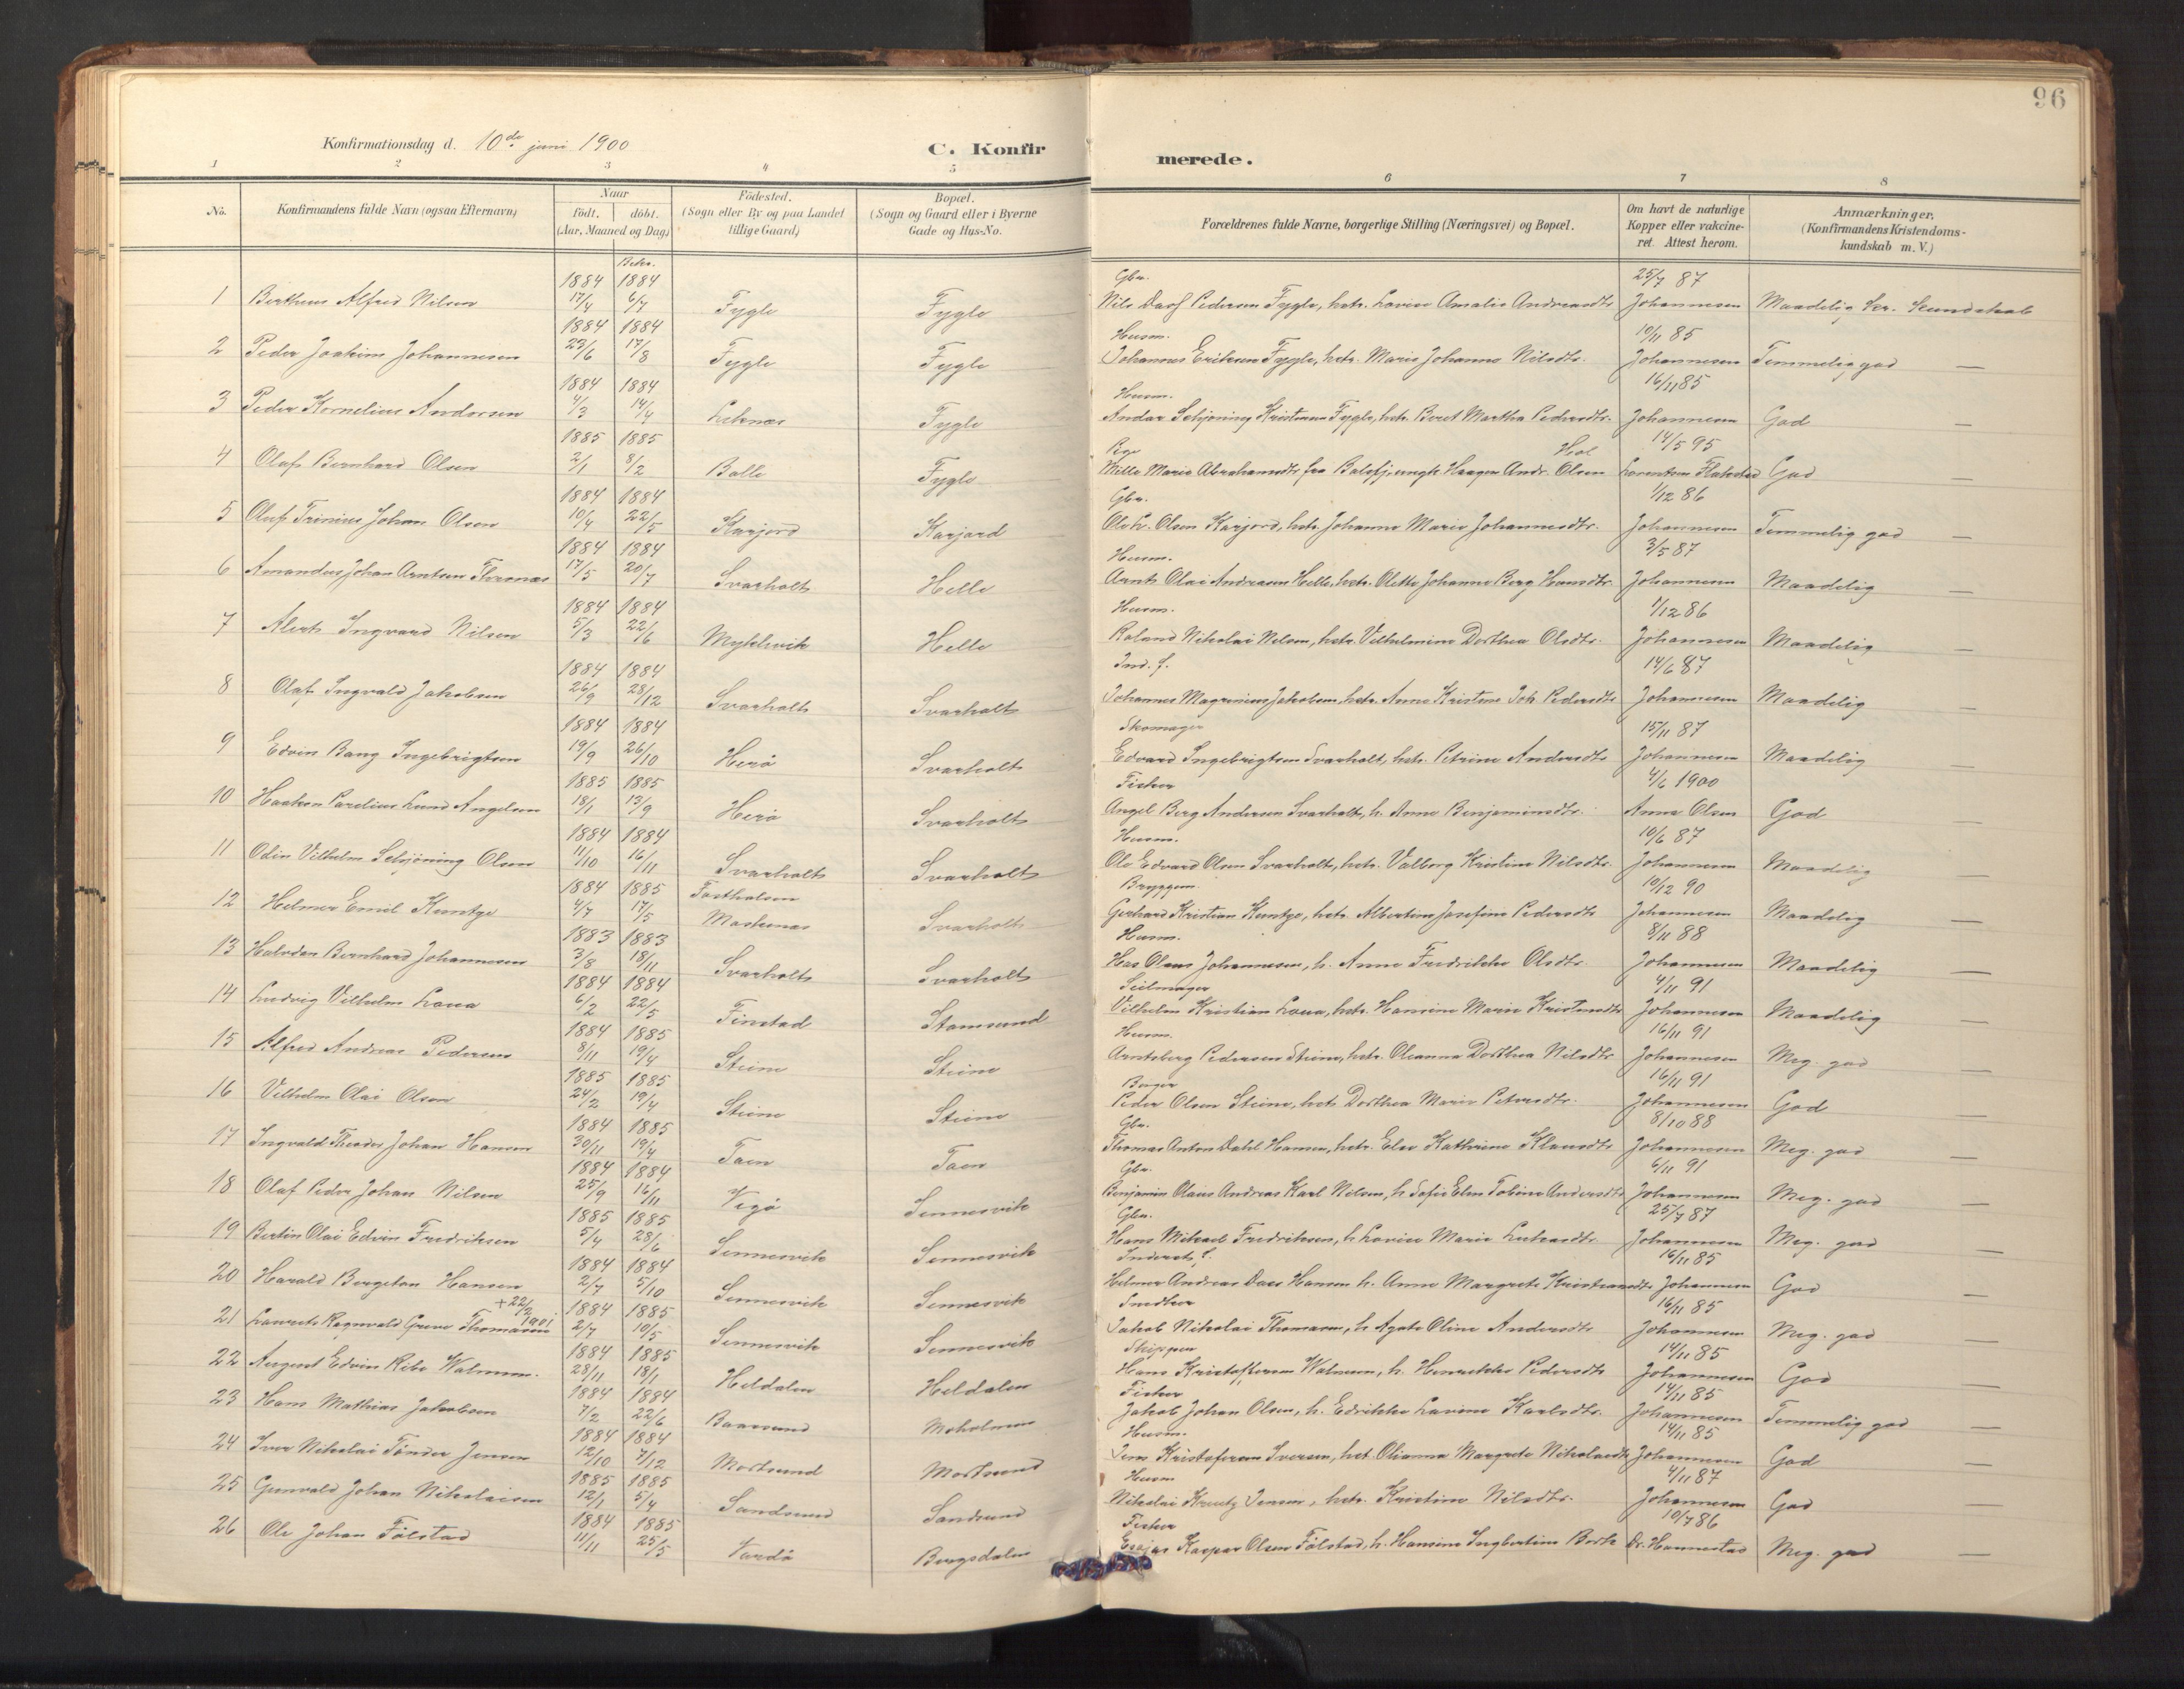 96
Konfirmationsdag d. 10de juni 1900
C. Konfirmerede.
1 2 3 4 5 6 7 8
No.
Konfirmandens fulde Navn (ogsaa Efternavn)
Naar
födt. döbt.
(Aar, Maaned og Dag)
Födested.
(Sogn eller By og paa Landet
tillige Gaard)
Bopæl.
(Sogn og Gaard eller i Byerne
Gade og Hus-No.
Forældrenes fulde Navne, borgerlige Stilling (Næringsvei) og Bopæl.
Om havt de naturlige
Kopper eller vakcine-
ret. Attest herom.
Anmærkninger.
(Konfirmandens Kristendoms-
kundskab m. V.)
1884 1884 Gbr. 25/7 87
1 Bertheus Alfred Nilsen 17/4 6/7 Fygle Fygle Nils Pedersen Fygle, hstr. Lovise Amalie Andreasdtr Johannesen Maadelig Kr. Kundskab
1884 1884 Husm. 10/11 85
2 Peder Joakim Johannesen 23/6 17/8 Fygle Fygle Johannes Eriksen Fygle, hstr. Marie Johanna Nilsdtr. Johannesen Temmelig god —
1884 1884 Husm. 16/11 85
3 Peder Kornelius Andorsen 4/3 14/4 Leknæs Fygle Andor Schjöning Kristiansen Fygle, hstr. Beret Martha Pedersdtr. Johannesen God —
1885 1885 Pige Hol 14/5 95
4 Olaf Bernhard Olsen 2/1 8/2 Balle Fygle Mille Marie Abrahamsdtr fra Balsfj, ungk. Haagen Andr. Olsen Lorentsen Flakstad God
1884 1884 Gbr. 1/12 86
5 Oluf Trinius Johan Olsen 10/4 22/5 Karjord Karjord Ole L. Olsen Karjord, hstr. Johanna Marie Johannesdtr. Johannesen Temmelig god —
1884 1884 Husm. 3/5 87
6 Amandus Johan Arntsen 17/5 20/7 Svarholt Helle Arnt Olai Andreasen Helle, hstr. Olette Johanna Berg Hansdtr. Johannesen Maadelig —
1884 1884 Husm. 1/12 86
7 Alert Ingvard Nilsen 5/3 22/6 Myklevik Helle Roland Nikolai Nilsen, hstr. Vilhelmine Dorthea Olsdtr. Johannesen Maadelig —
1884 1884 Ind. f. 14/6 87
8 Olaf Ingvald Jakobsen 26/9 28/12 Svarholt Svarholt Johannes Magrinius Jakobsen, hstr. Anne Kristine Joh. Pedersdtr Johannesen Maadelig —
1884 1884 Skomager 15/11 87
9 Edvin Bang Ingebrigtsen 19/9 26/10 Herö Svarholt Edvard Ingebrigtsen Svarholt, hstr. Petrine Andersdtr Johannesen Maadelig —
1885 1885 Fisker 4/6 1900
10 Haakon Parelius Lund Angelsen 18/1 13/9 Herö Svarholt Angel Berg Andersen Svarholt, h. Anne Benjaminsdtr. Anna Olsen God —
1884 1884 Husm. 10/6 87
11 Odin Vilhelm Schjöning Olsen 11/10 16/11 Svarholt Svarholt Ole Edvard Olsen Svarholt, hstr. Valborg Kristine Nilsdtr. Johannesen Maadelig —
1884 1885 Bryggem. 10/12 90
12 Helmer Emil Kuntze 4/7 17/5 Moskenæs Svarholt Gerhard Kristian Kuntze, hstr. Albertine Josefine Pedersdtr Johannesen Maadelig
1883 1883 Husm. 8/11 88
13 Halvdan Bernhard Johannesen 3/8 18/11 Svarholt Svarholt Hans Olaus Johannesen, h. Anne Fredrikke Olsdtr. Johannesen Maadelig —
1884 1884 Seilmager 4/11 91
14 Ludvig Vilhelm Loua 6/2 22/5 Finstad Stamsund Vilhelm Kristian Loua, hstr. Hansine Marie Kristensdtr Johannesen Maadelig —
1884 1885 Husm. 16/11 91
15 Alfred Andreas Pedersen 8/11 19/4 Steine Steine Arntsberg Pedersen Steine, hstr. Oleanna Dorthea Nilsdtr Johannesen Meg. god —
1885 1885 16/11 91
16 Vilhelm Olai Olsen 24/2 19/4 Steine Steine Peder Olsen Steine, hstr Dorthea Marie Petersdtr. Johannesen God —
1884 1885 Gbr. 8/10 88
17 Ingvald Theodor Johan Hansen 30/11 19/4 Taen Taen Thomas Anton Dahl Hansen, hstr. Else Kathrine Klausdtr Johannesen Meg. god —
1884 1884 Gbr. 6/11 91
18 Olaf Peder Johan Nilsen 25/9 16/11 Vegö Sennesvik Benjamin Olaus Andreas Karl Nilsen, h Sofie Elen Tobine Andersdtr Johannesen Meg. god —
1885 1885 Gbr. 25/7 87
19 Bertin Olai Edvin Fredriksen 5/4 28/6 Sennesvik Sennesvik Hans Mikael Fredriksen, h Lovise Marie Lukasdtr Johannesen Meg. god —
1884 1884 Inderst f. 16/11 85
20 Harald Bergeton Hansen 2/7 5/10 Sennesvik Sennesvik Helmer Andreas Daes Hansen h. Anne Margrete Kristiansdtr Johannesen God —
+22/2 1901
1884 1885 Snedker 16/11 85
21 Laurits Ragnvald Greve Thomasen 2/7 10/5 Sennesvik Sennesvik Jakob Nikolai Thomasen, h Agate Oline Andersdtr Johannesen Meg. god —
1884 1885 Skipper 14/11 85
22 August Edvin Ribe Walmsen. 28/11 18/1 Heldalen Heldalen Hans Kristoffersen Walnesen, h. Henrikke Pedersdtr Johannesen God —
1884 1884 Fisker 14/11 85
23 Hans Mathias Jakobsen 7/2 22/6 Baarsund Moholmen Jakob Johan Olsen, h. Edrikke Lavine Karlsdtr. Johannesen Temmelig god —
1884 1884 Husm. 14/11 85
24 Iver Nikolai Tönder Jensen 12/10 7/12 Mortsund Mortsund Jens Kristofersen Iversen, hst. Olianna Margrete Nikolaisdtr Johannesen God —
1885 1885 Husm 4/11 87
25 Gunvald Johan Nikolaisen 12/1 5/4 Sandsund Sandsund Nikolai Kreutz Jensen, hstr. Kristine Nilsdtr. Johannesen God —
1884 1885 Fisker 10/7 86
26 Ole Johan Fölstad 11/11 25/5 Vardö Bergsdalen Esajas Kaspar Olsen Fölstad, h. Hansine Ingbertine Berth Dr. Hannestad Meg. god —